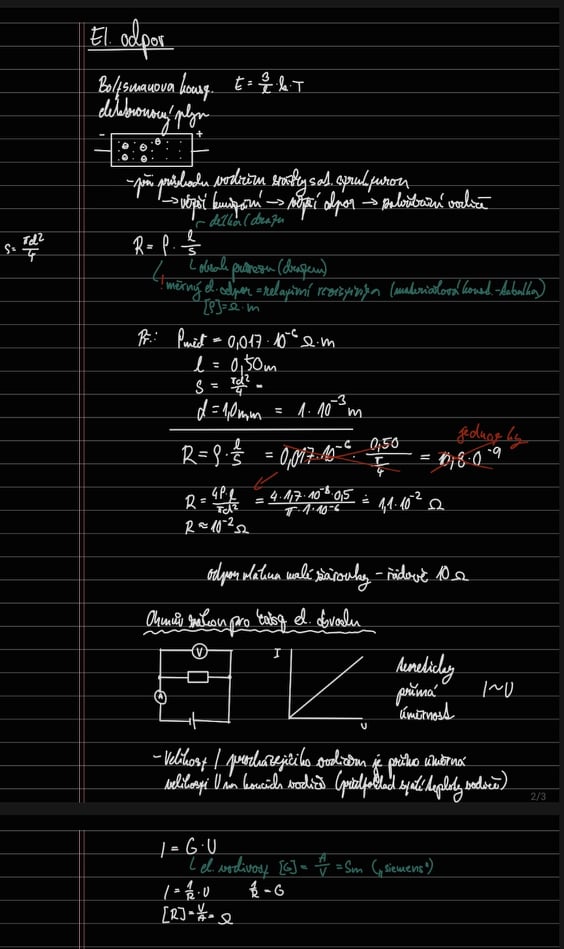 El. odpor
E = 3/2 · k · T
elektronový plyn
- +
- při průchodu vodičem srážky s
→ větší → větší odpor → zahřívání vodiče
délka (drátu)
S = πd²/4
R = ρ · l/S
obsah průřezu (drátem)
měrný el. odpor = (materiálová konst. - tabulky)
[ρ] = Ω · m
Př.: ρměď = 0,017 · 10⁻⁶ Ω · m
l = 0,50 m
S = πd²/4 =
d = 1,0 mm = 1 · 10⁻³ m
R = ρ · l/S = 0,017 · 10⁻⁶ · 0,50
π/4
R = 4ρl/πd² = 4 · 1,7 · 10⁻⁸ · 0,5 / π · 1 · 10⁻⁶ ≐ 1,1 · 10⁻² Ω
R ≈ 10⁻² Ω
odpor vlákna malé žárovky - řádově 10 Ω
Ohmův zákon pro část el. obvodu
V
A
I
U
teoreticky
přímá
úměrnost
I ~ U
- Velikost I procházejícího vodičem je přímo úměrná
velikosti U na koncích vodiče (předpoklad stálé teploty vodiče)
2/3
I = G · U
el. vodivost [G] = A/V = Sm („siemens“)
I = 1/R · U 1/R = G
[R] = V/A = Ω